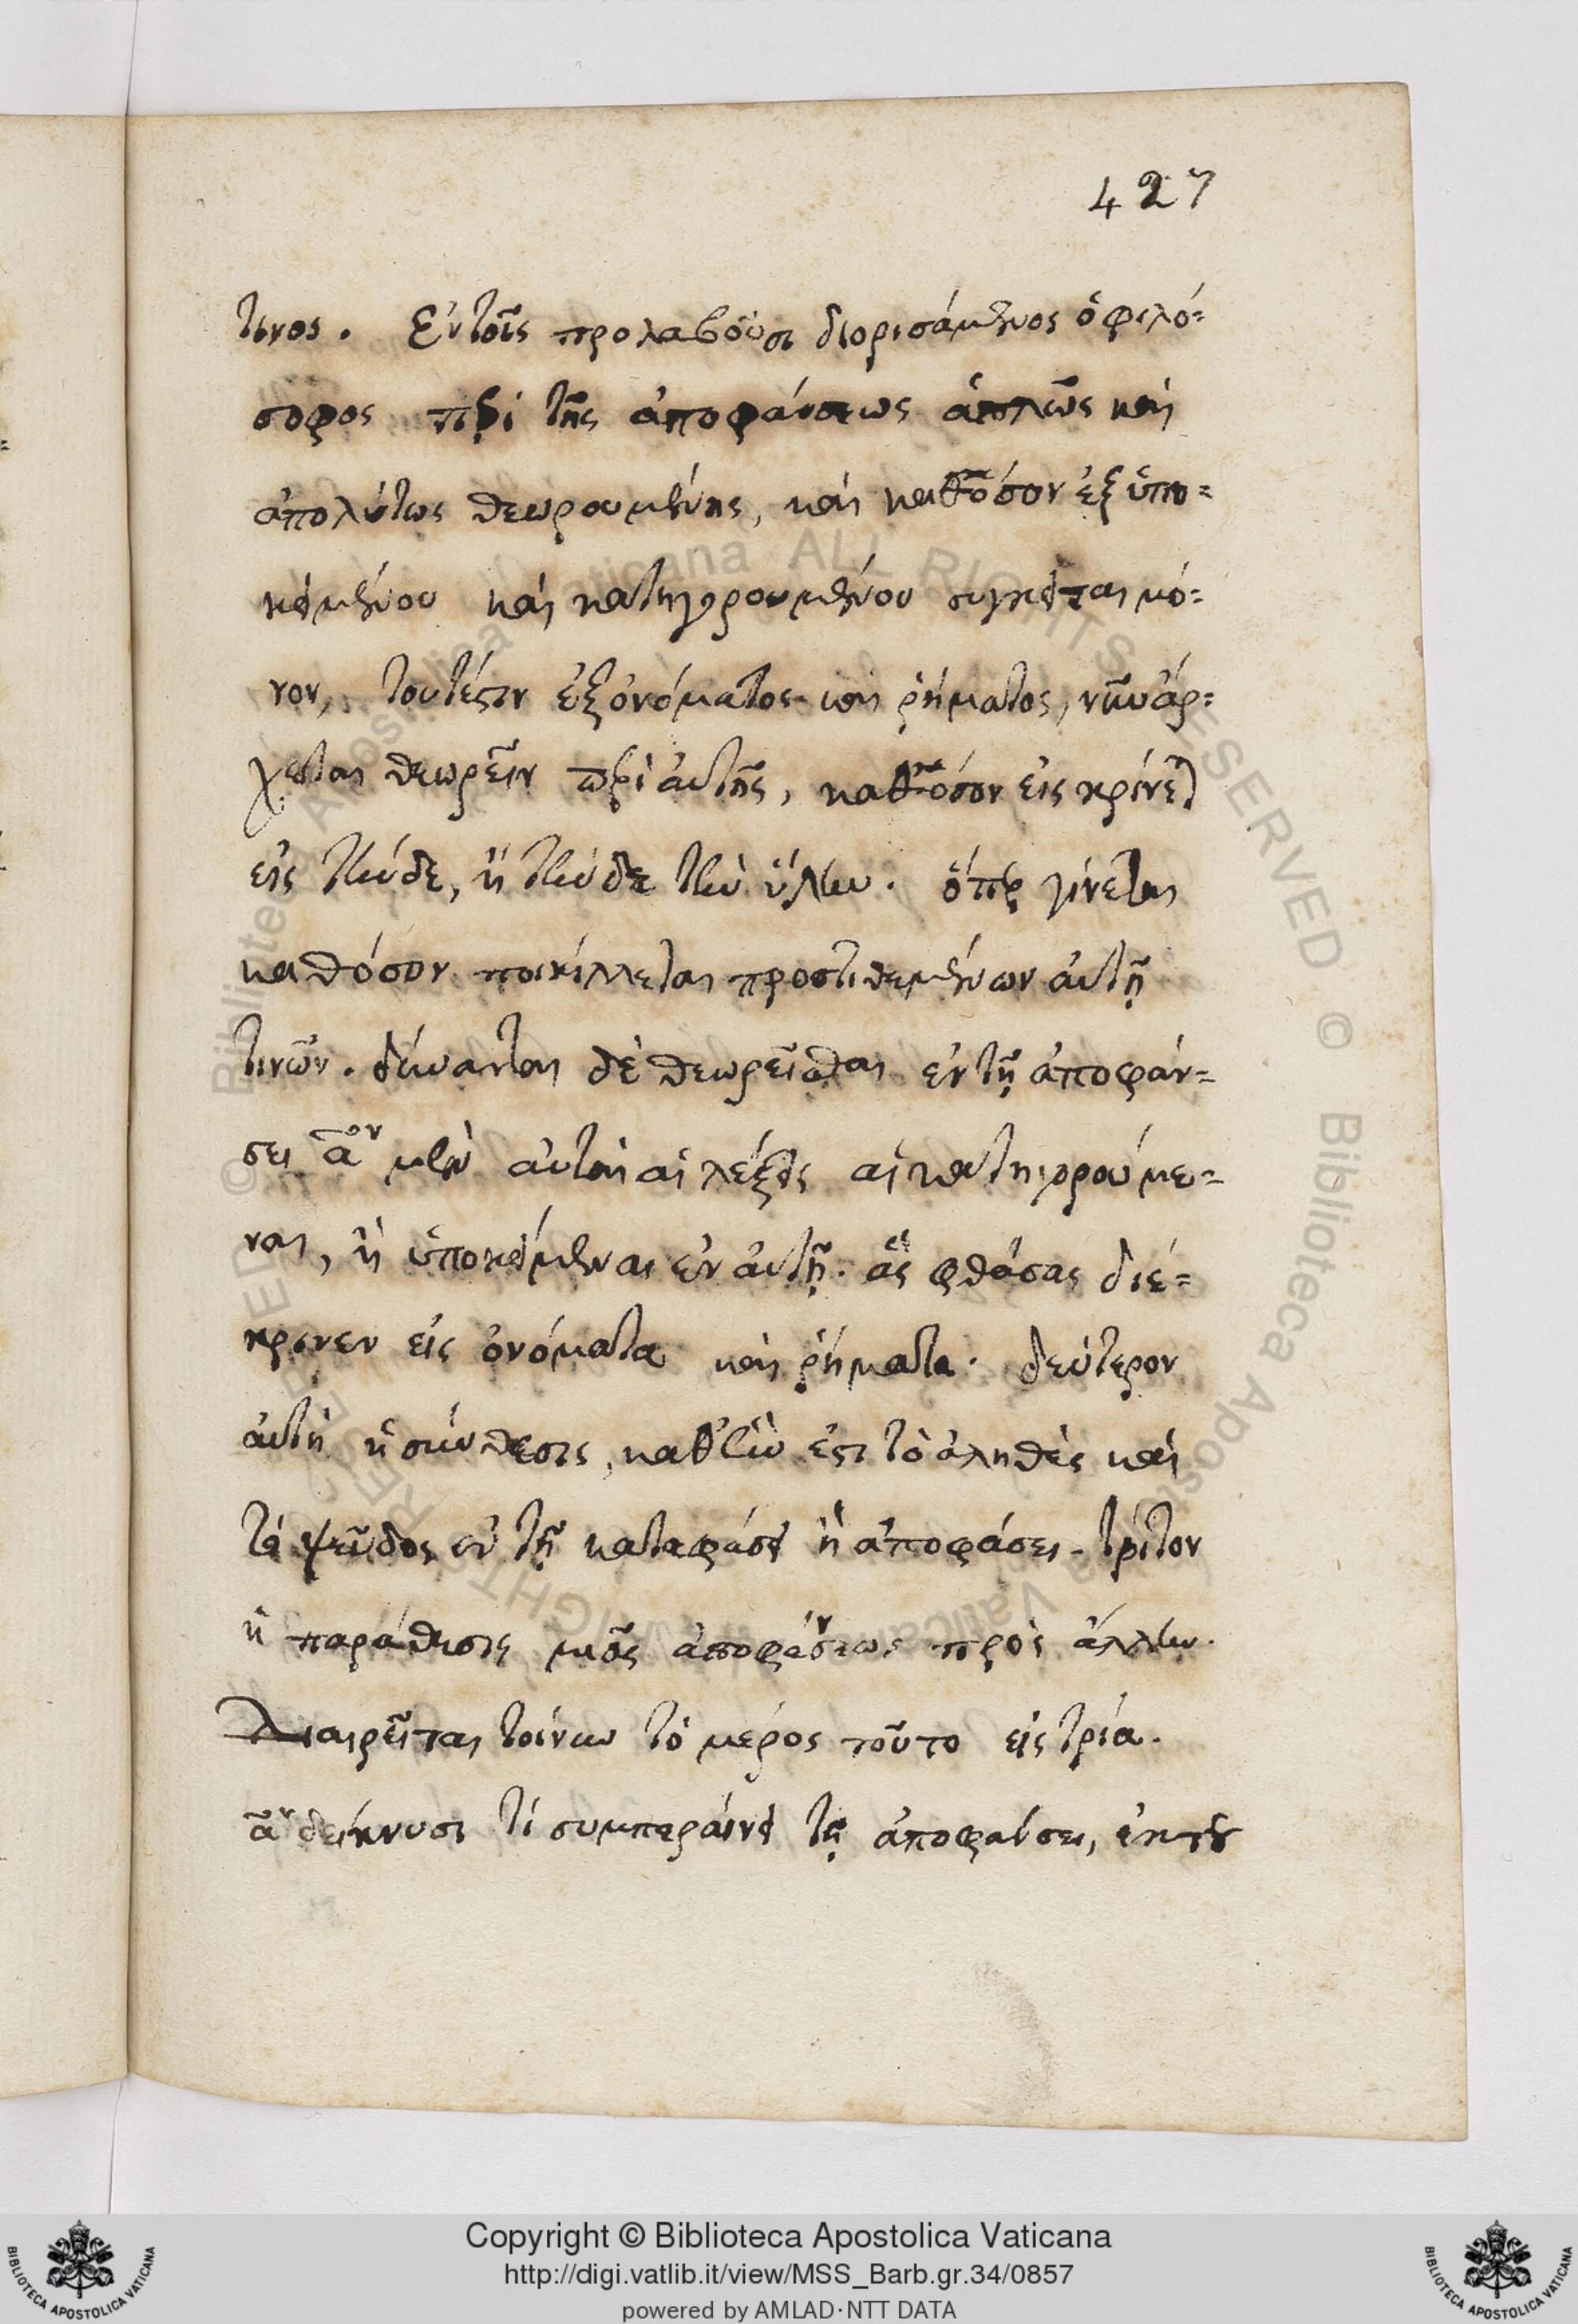 427
τινος. Ἐν τοῖς προλαβοῦσι διορισάμενος ὁ φιλό=
σοφος περὶ τῆς ἀποφάνσεως ἁπλῶς καὶ
ἀπολύτως θεωρουμένης, καὶ καθ' ὅσον ἐξ ὑπο=
κειμένου καὶ κατηγορουμένου συγκεῖται μό=
νον, τουτέστιν ἐξ ὀνόματος καὶ ῥήματος, νῦν ἄρ=
χεται θεωρεῖν περὶ αὐτῆς, καθ' ὅσον εἰσκρίνεται
εἰς τήνδε, ἢ τήνδε τὴν ὕλην. ὅπερ γίνεται
καθόσον ποικίλλεται προστιθεμένων αὐτῇ
τινῶν. δύνανται δὲ θεωρεῖσθαι ἐν τῇ ἀποφάν=
σει αον μὲν αὐταὶ αἱ λέξεις αἱ κατηγορούμε=
ναι, ἢ ὑποκείμεναι ἐν αὐτῇ. ἃς φθάσας διέ=
κρινεν εἰς ὀνόματα καὶ ῥήματα. δεύτερον
αὐτὴ ἡ σύνθεσις, καθ' ἣν ἐστι τὸ ἀληθὲς καὶ
τὸ ψεῦδος ἐν τῇ καταφάσει ἢ ἀποφάσει. τρίτον
ἡ παράθεσις μιᾶς ἀποφάνσεως πρὸς ἄλλην.
Διαιρεῖται τοίνυν τὸ μέρος τοῦτο εἰς τρία.
αον δείκνυσι τί συμπεραίνει τῇ ἀποφάνσει, ἐκ τοῦ
Copyright © Biblioteca Apostolica Vaticana
http://digi.vatlib.it/view/MSS_Barb.gr.34/0857
powered by AMLAD·NTT DATA
BIBLIOTECA APOSTOLICA VATICANA
BIBLIOTECA APOSTOLICA VATICANA
© Biblioteca Apostolica Vaticana ALL RIGHTS RESERVED © Biblioteca Apostolica Vaticana ALL RIGHTS RESERVED